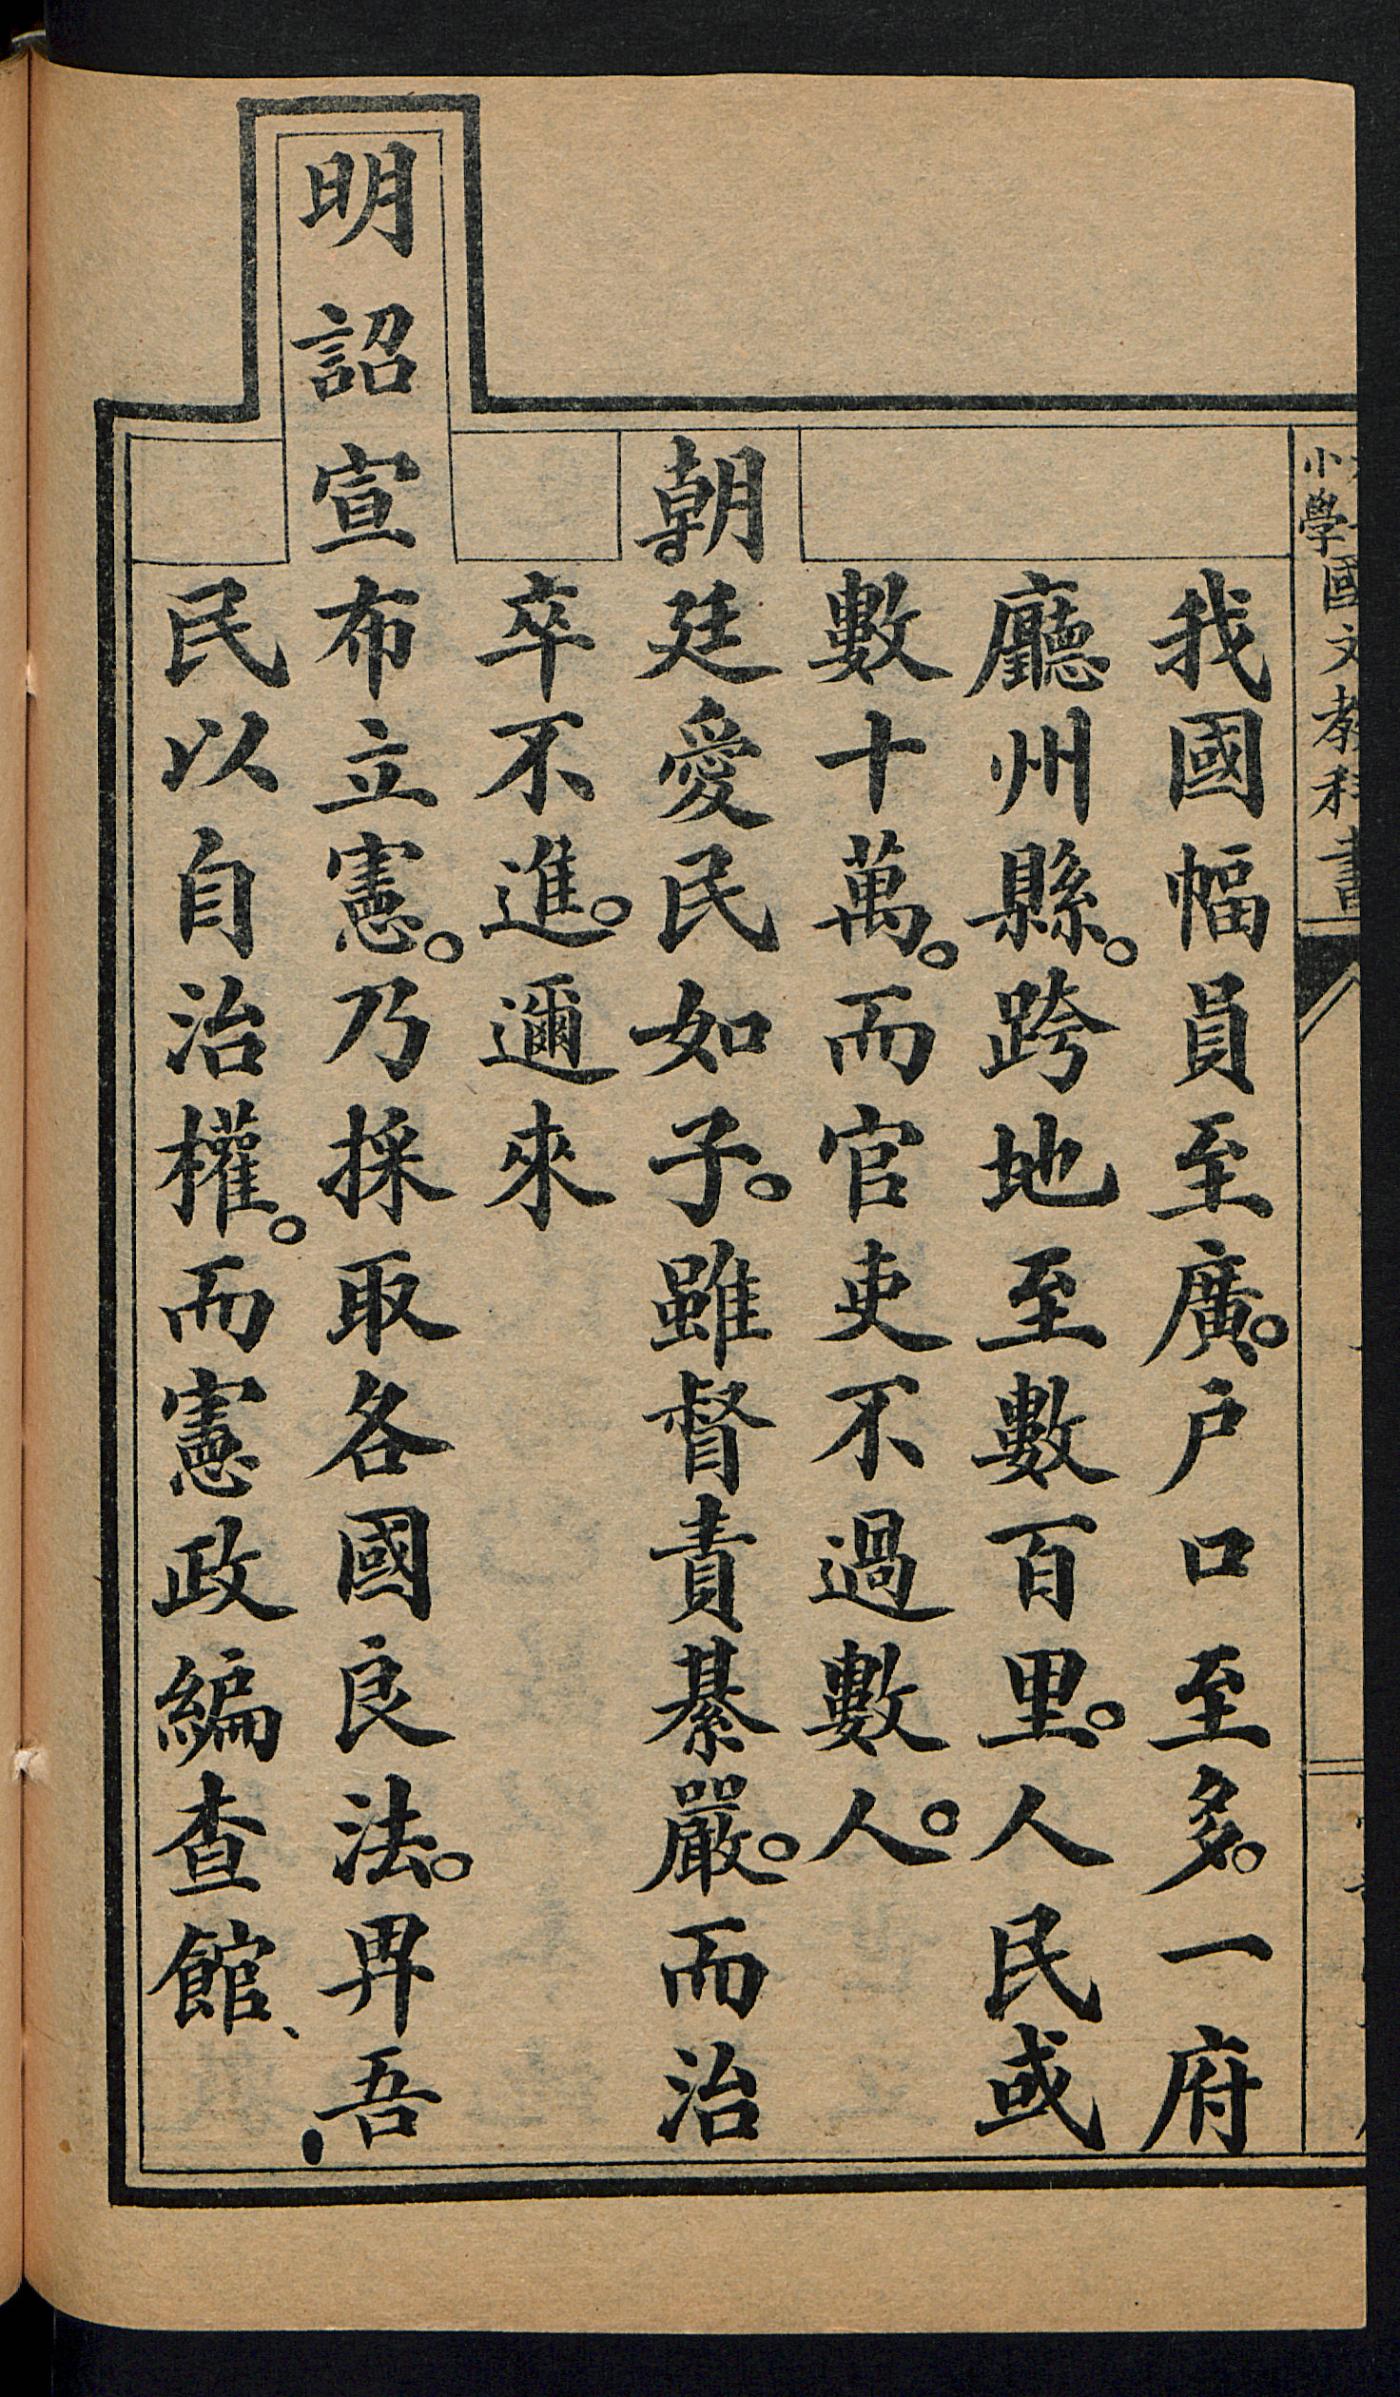 小學國文教科書
我國幅員至廣。戶口至多。一府
廳州縣。跨地至數百里。人民或
數十萬。而官吏不過數人。
朝廷愛民如子。雖督責綦嚴。而治
卒不進。邇來
明詔宣布立憲。乃採取各國良法。畀吾
民以自治權。而憲政編查館、